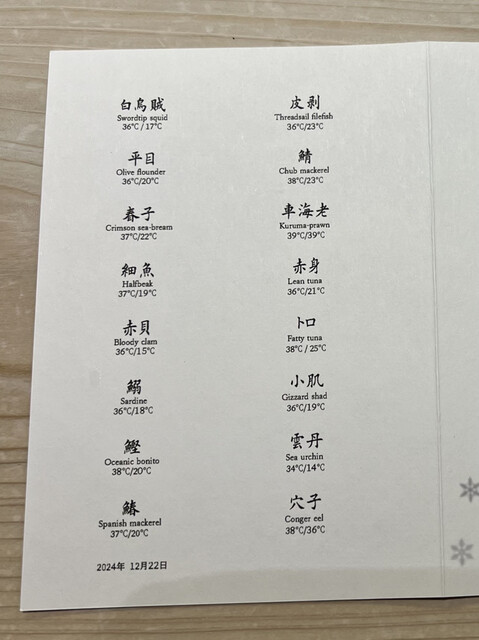 白烏賊
Swordtip squid
36℃ / 17℃
平目
Olive flounder
36℃/20℃
春子
Crimson sea-bream
37℃/22℃
細魚
Halfbeak
37℃/19℃
赤貝
Bloody clam
36℃/15℃
鰯
Sardine
36℃/18℃
鰹
Oceanic bonito
38℃/20℃
鰆
Spanish mackerel
37℃/20℃
2024年 12月22日
皮剥
Threadsail filefish
36℃/23℃
鯖
Chub mackerel
38℃/23℃
車海老
Kuruma-prawn
39℃/39℃
赤身
Lean tuna
36℃/21℃
トロ
Fatty tuna
38℃ / 25℃
小肌
Gizzard shad
36℃/19℃
雲丹
Sea urchin
34℃/14℃
穴子
Conger eel
38℃/36℃